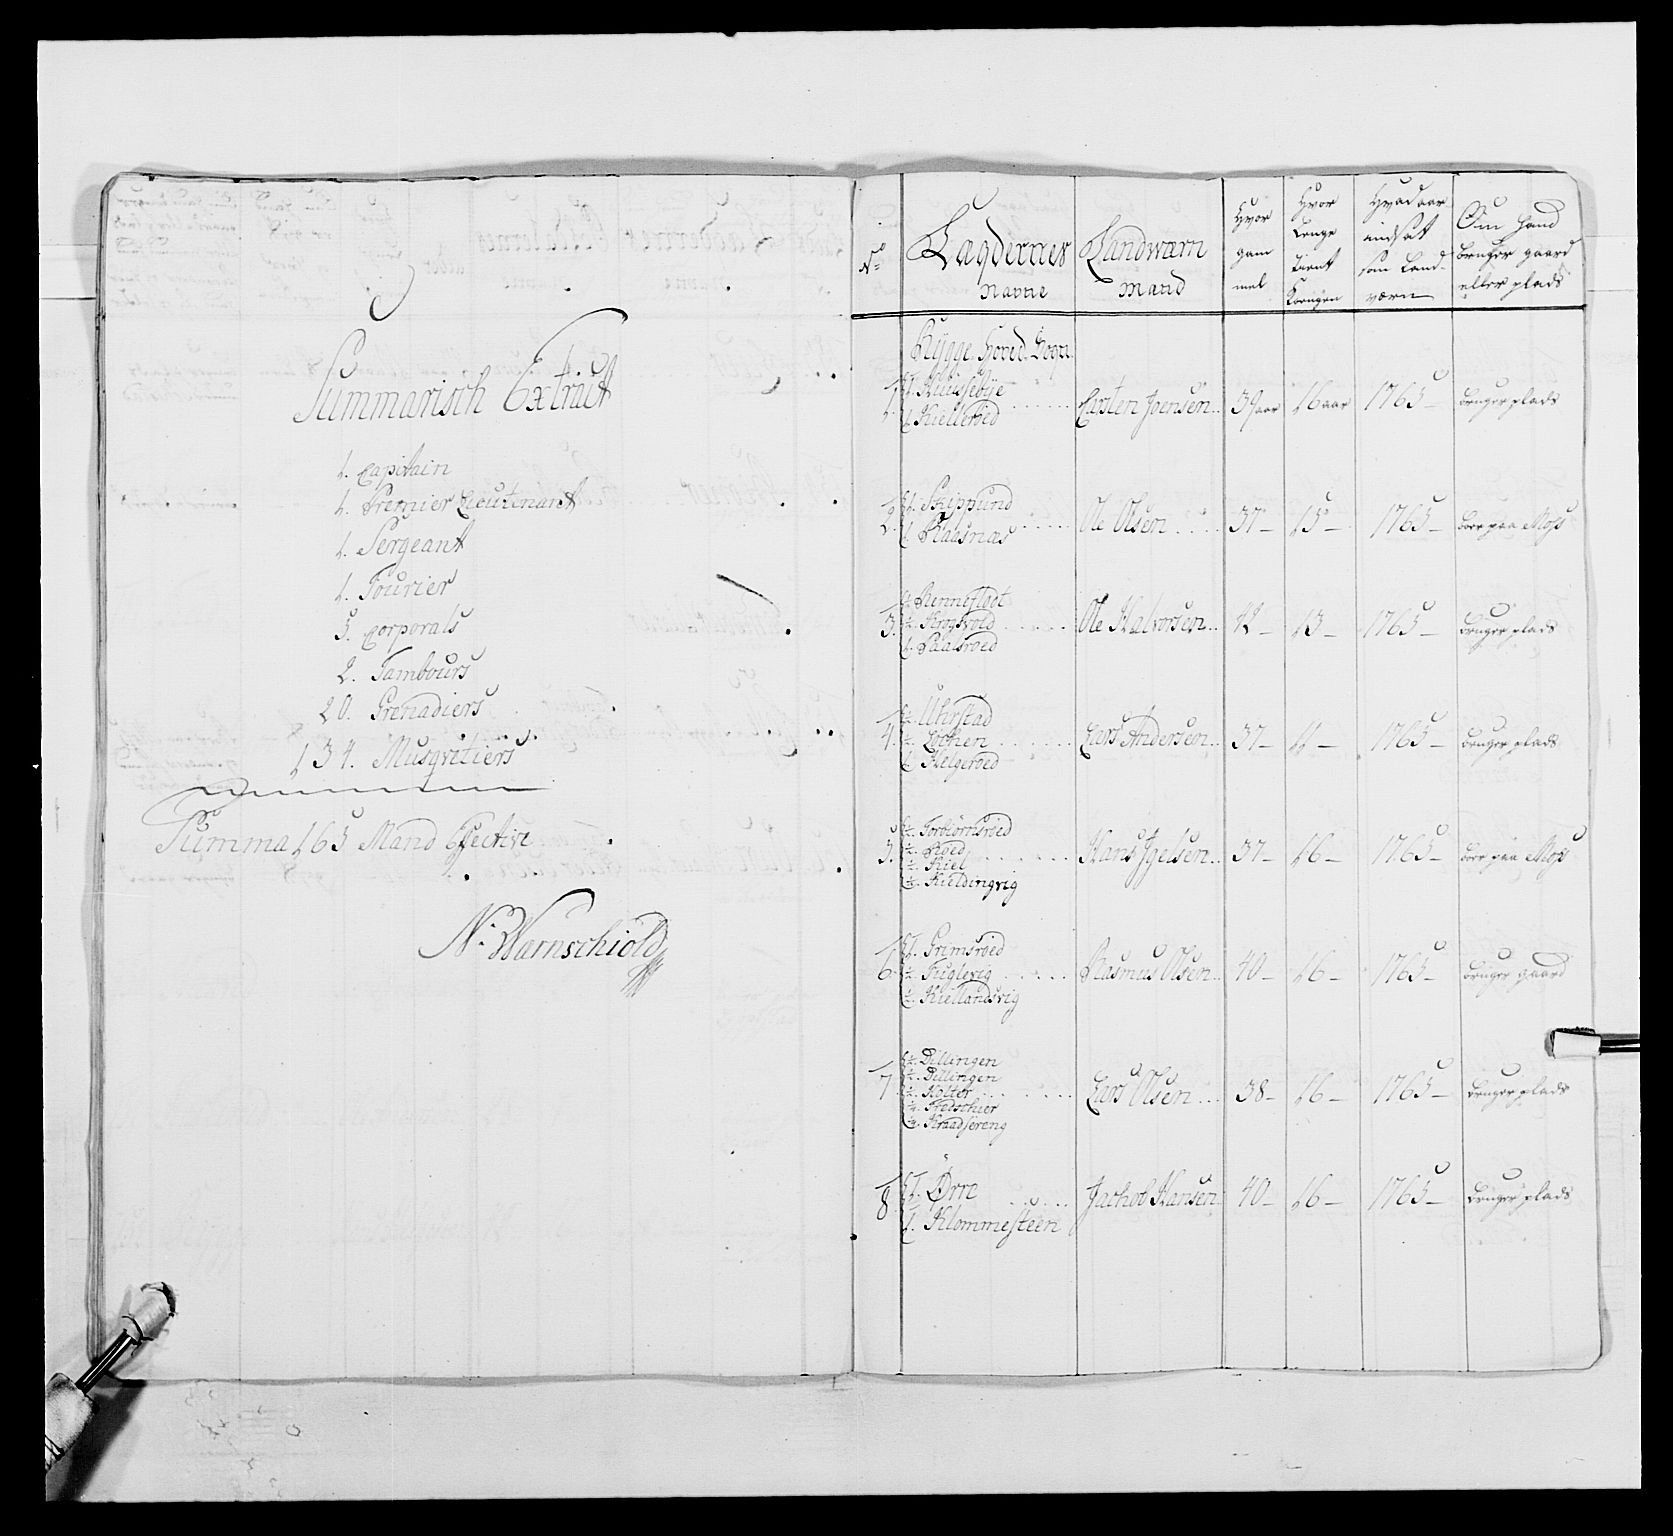 Summarisch Extract
1. Capitain
1. Premier Lieutnant
1. Sergeant
1. Fourier
5. Corporals
2. Tambours
20. Grenadiers
134. Musqvitiers
Summa 165 Mand Effective
N: Warnschiold
No
Lægdernes Navne
Landwærn Mand
Hvor gam mel
Hvor Lenge tient Kongen
Hvad aar indsat som Land- værn
Om hand bruger gaard eller plads
Rygge Hoved Sogn
1. 1. Huusebye
1. Kiellerød
Carsten Joensen 39 aar 16 aar 1765 bruger plads
2. 1. Skippund
1. Raasnæs
Ole Olsen 37 15 1765 boer paa Moss
3. Rennefloot
Krogsvold
1. Paalsrød
Ole Halvorsen 42 13 1765 bruger plads
4. Uhrstad
Lochen
1. Helgerød
Lars Andersen 37 11 1765 bruger plads
5. ½. Torbiørnsrød
½. Roed
½. Kiel
½. Kieldingvig
Hans Igelsen 37 16 1765 boer paa Moss
6. 1. Grimsrød
½. Fuglevig
½. Kiellandsvig
Rasmus Olsen 40 16 1765 bruger gaard
7. ½. Dillingen
½. Dillingen
½. Holter
¼. Fredschier
¼. Kraadsereng
Lars Olsen 38 16 1765 bruger plads
8. 1. Ørre
1. Klommesteen
Jachob Hansen 40 16 1765 bruger plads